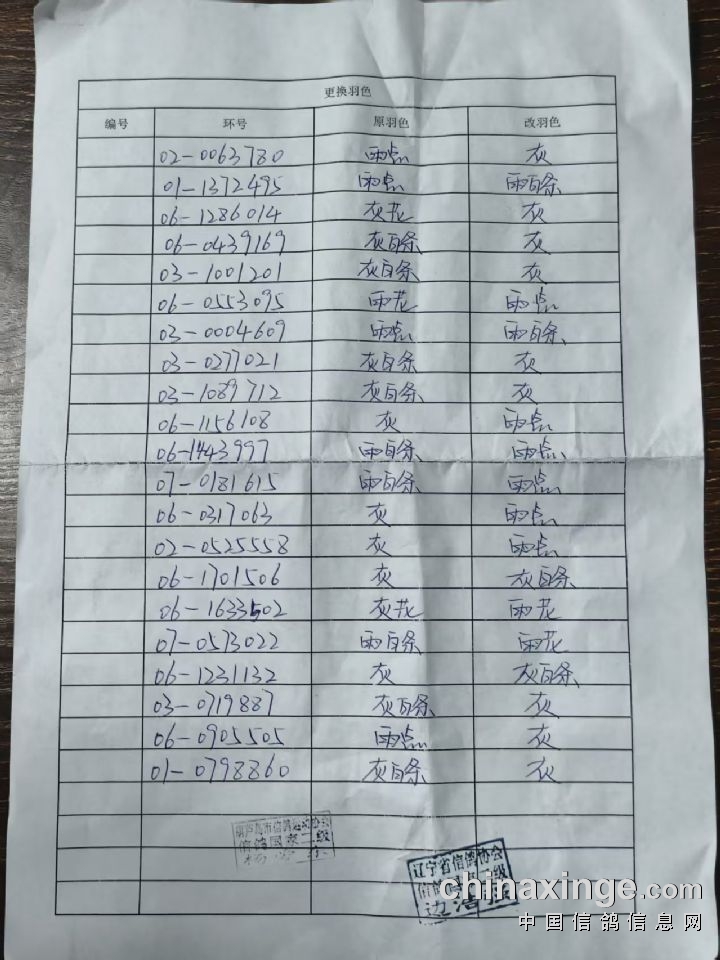 更换羽色
编号 环号 原羽色 改羽色
02-0063780 雨点 灰
01-1372495 雨点 雨白条
06-1286014 灰花 灰
06-0439169 灰白条 灰
03-1001201 灰白条 灰
06-0553095 雨花 雨点
03-0004609 雨点 雨白条
03-0277021 灰白条 灰
03-1089712 灰白条 灰
06-1156108 灰 雨点
06-1443997 雨白条 雨点
07-0181615 雨白条 雨点
06-0317063 灰 雨点
02-0525558 灰 雨点
06-1701506 灰 灰白条
06-1633502 灰花 雨花
07-0573022 雨白条 雨花
06-1231132 灰 灰白条
03-0719887 灰白条 灰
06-0905505 雨点 灰
01-0798860 灰白条 灰
葫芦岛市信鸽运动协会
信鸽国家二级
辽宁省信鸽协会
信鸽 级
边洁
chinaxinge.com
中国信鸽信息网